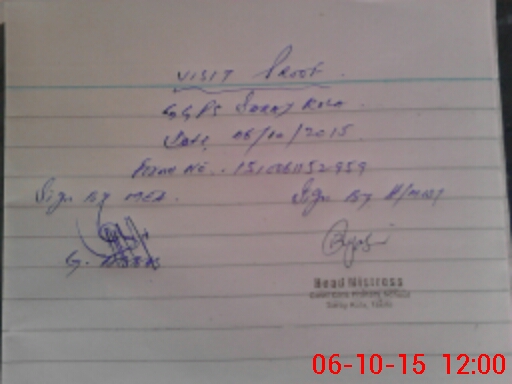 VISIT PROOF
GGPS Saray Kala
Date 06/10/2015
Form No. 151061152959
Sign By MEA. Sign By H/Mist
Head Mistress
06-10-15 12:00